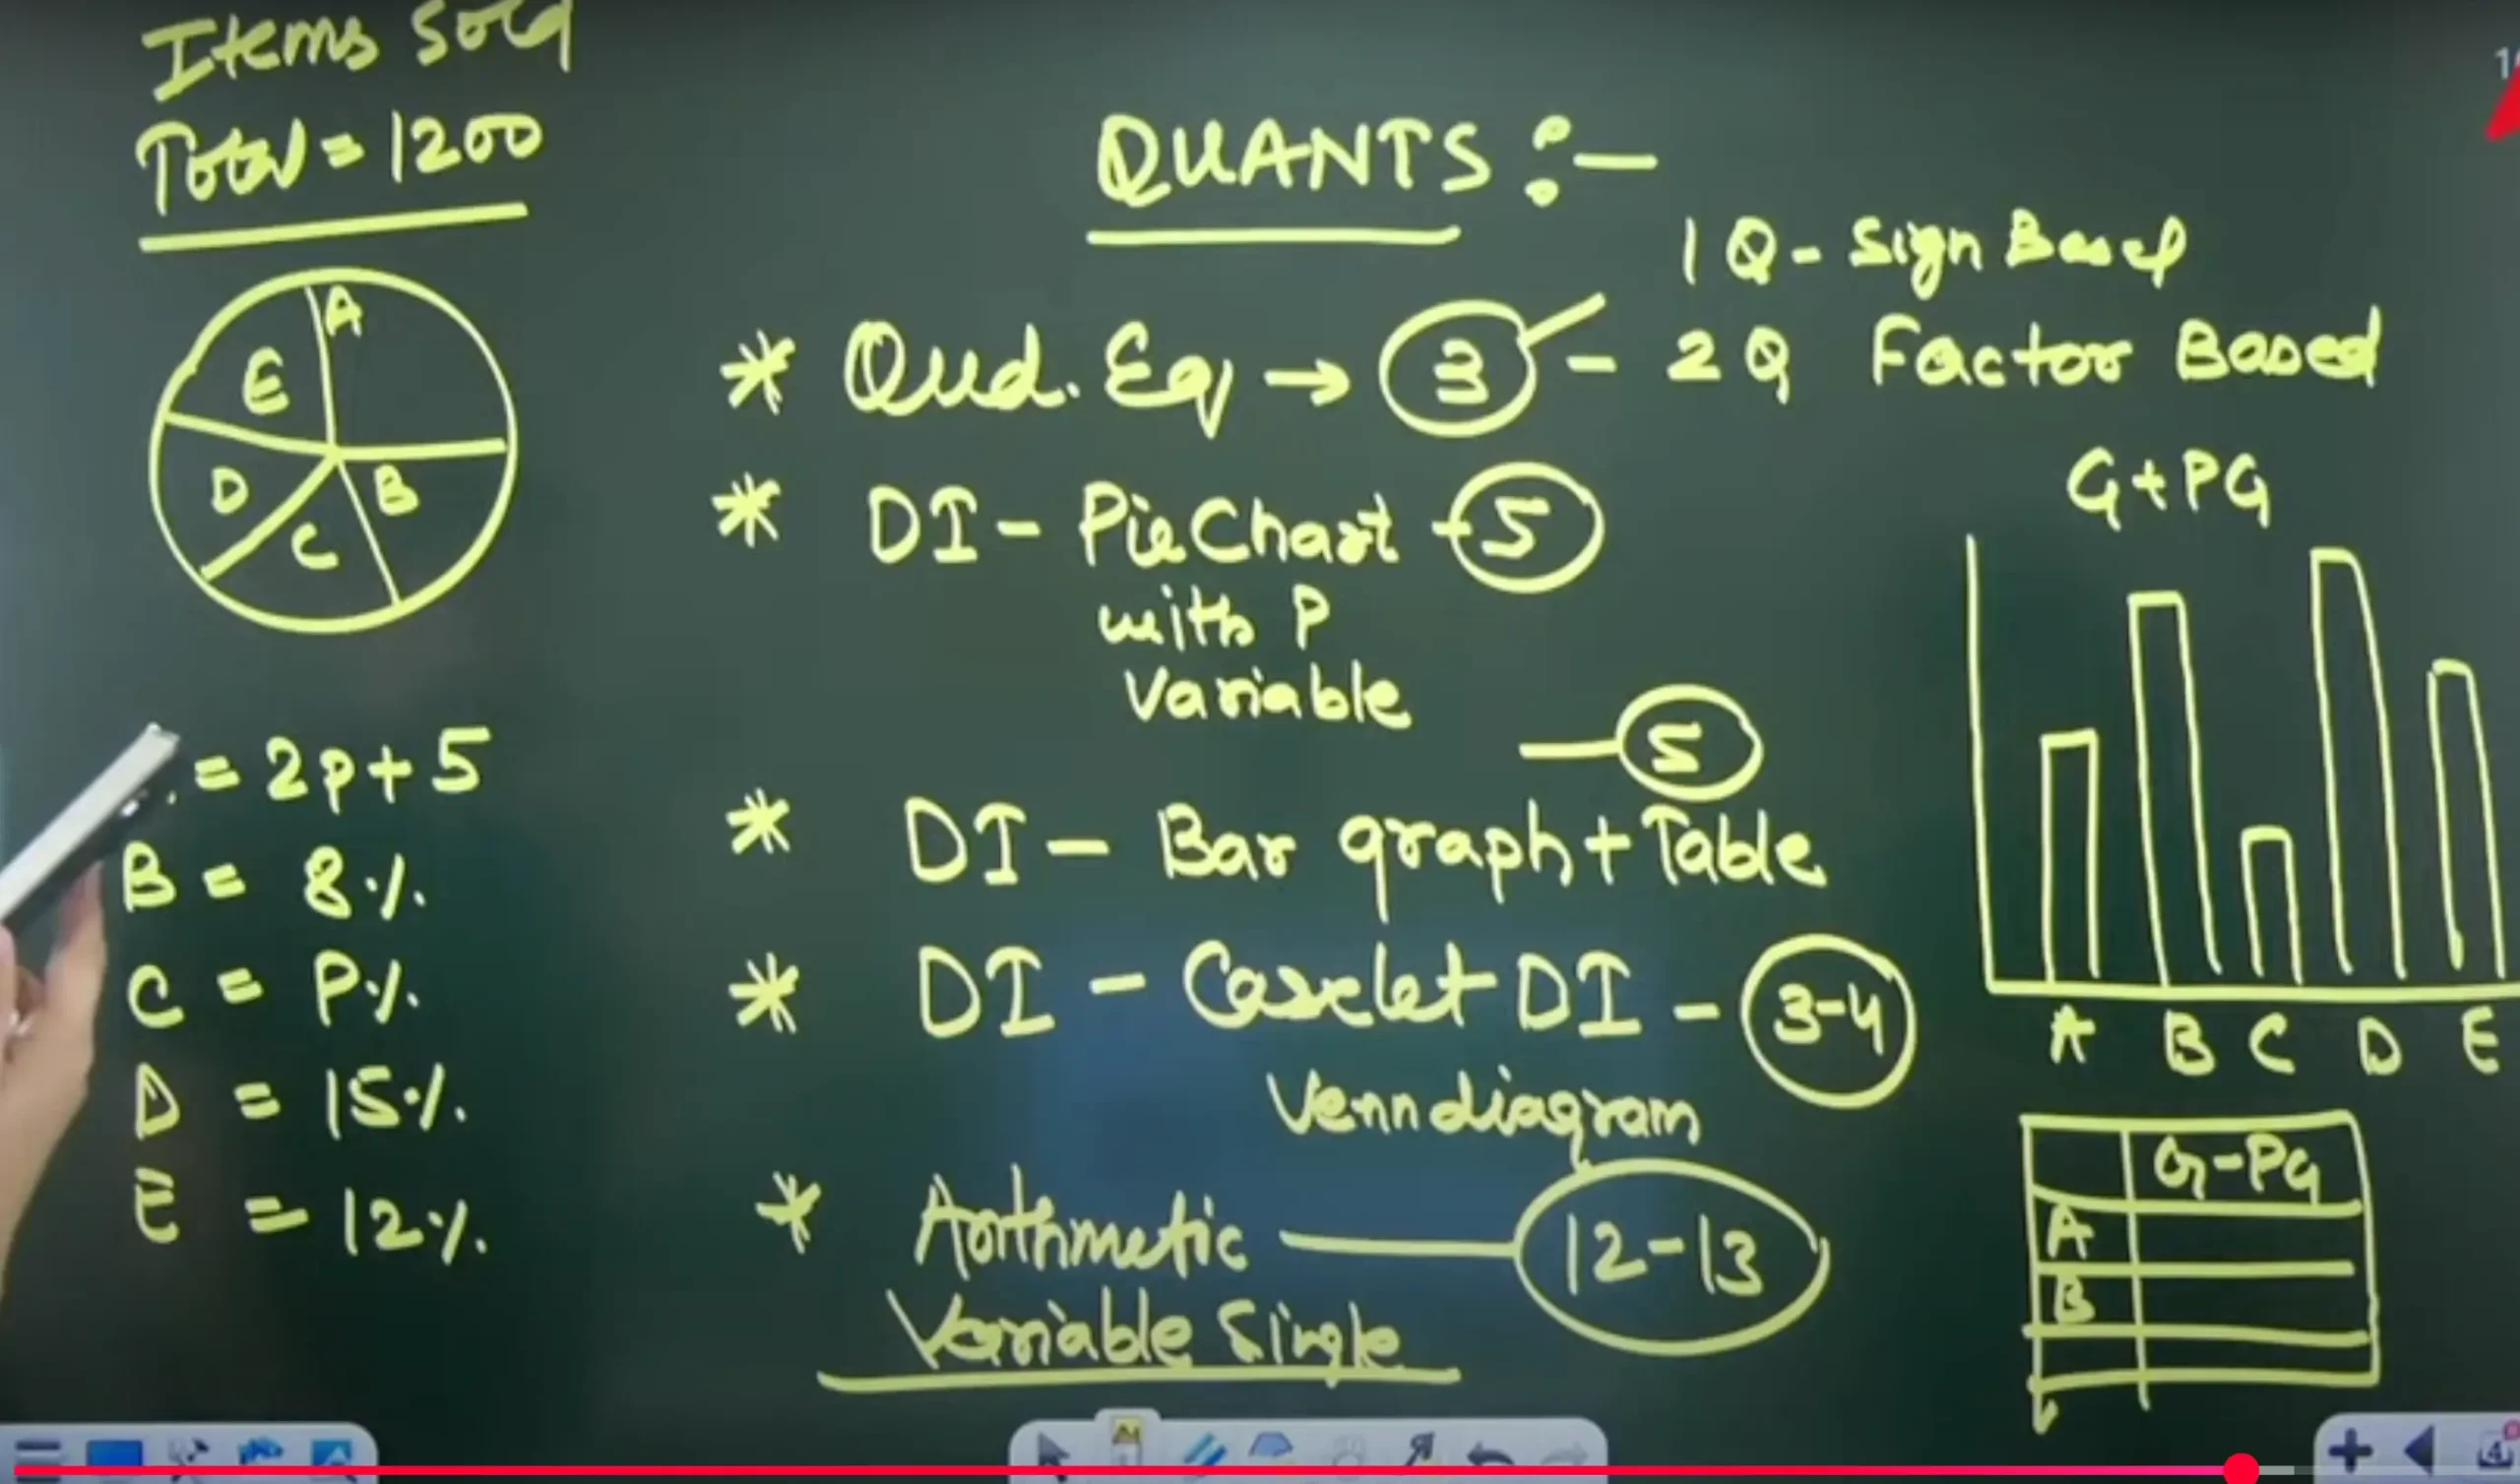 Items Sold
Total = 1200
A
E
D
B
C
= 2p + 5
B = 8%
C = P%
D = 15%
E = 12%
QUANTS :-
1 Q - Sign Based
* Qud. Eq → 3 - 2 Q Factor Based
* DI - Pie Chart - 5
with P
Variable
- 5
* DI - Bar graph + Table
* DI - Caselet DI - 3-4
Venn diagram
* Arithmetic - 12-13
Variable Single
G + PG
A B C D E
G - PG
A
B